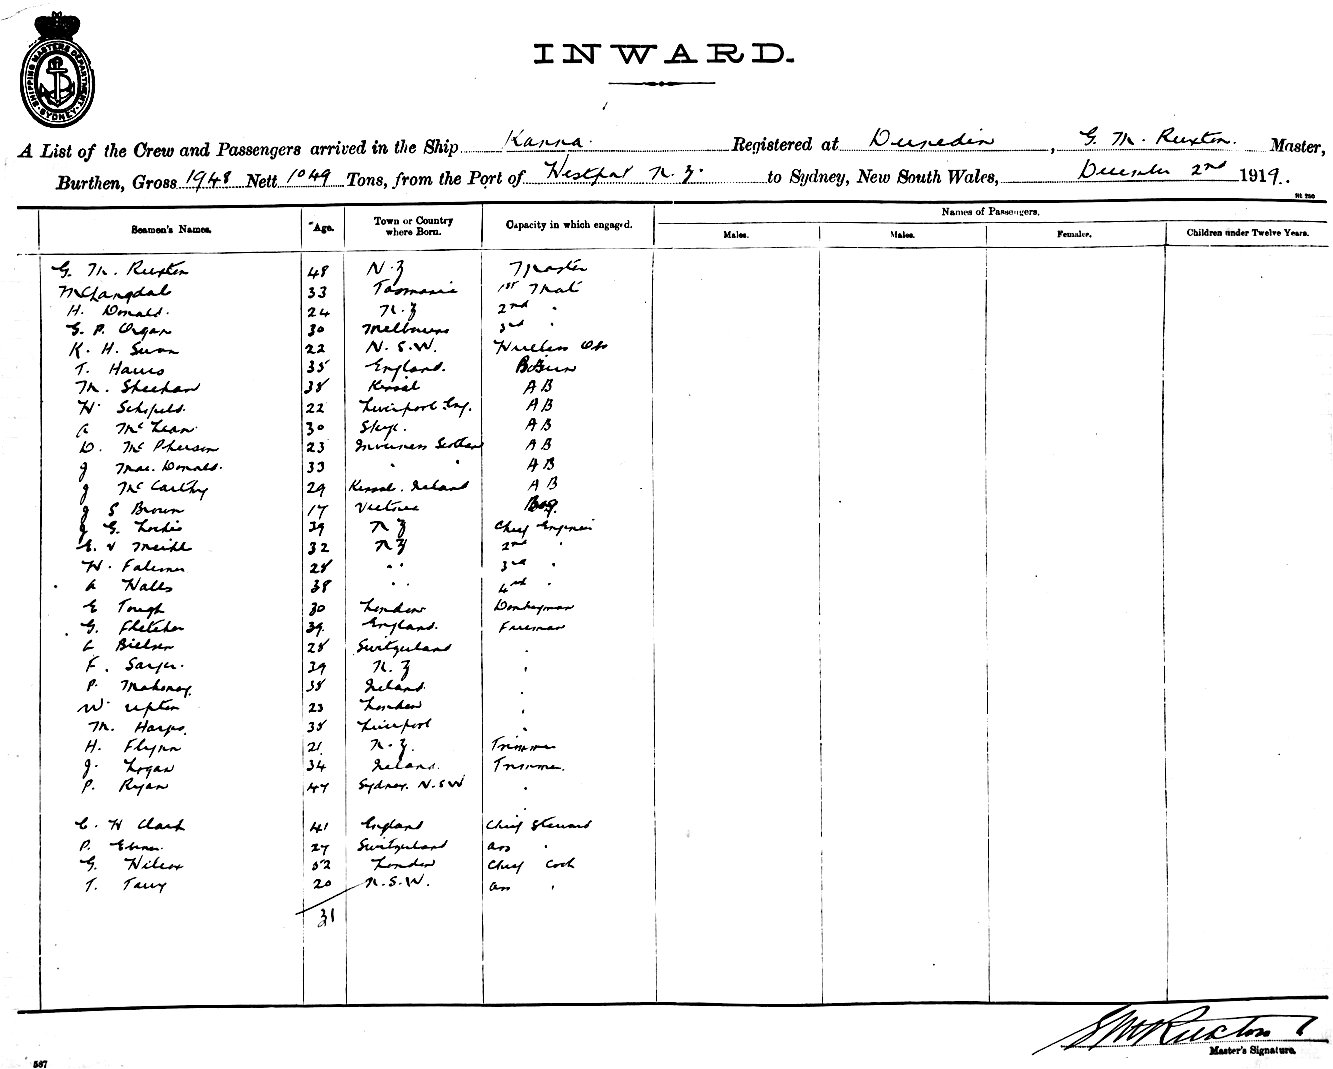 SHIPPING MASTERS DEPARTMENT SYDNEY
INWARD.
A List of the Crew and Passengers arrived in the Ship Kanna. Registered at Dunedin, G. M. Ruxton. Master,
Burthen, Gross 1948 Nett 1049 Tons, from the Port of Westport N.Z. to Sydney, New South Wales, December 2nd 1919.
Names of Passengers.
Seamen's Names. Age. Town or Country where Born. Capacity in which engaged. Males. Males. Females. Children under Twelve Years.
G. M. Ruxton 48 N.Z Master
33 Tasmania 1st Mate
H. Donald. 24 N.Z 2nd "
G. P. Organ 30 Melbourne 3rd "
K. H. Swan 22 N.S.W. Wireless Op
T. 35 England.
M. Sheehan 38 A B
W. 22 Liverpool Eng. A B
A McLean 30 Skye. A B
D. McPherson 23 Inverness Scotland A B
J MacDonald. 33 " " A B
J McCarthy 29 Ireland A B
J S Brown 17 Boy.
J G. 39 N Z Chief Engineer
32 N Z 2nd "
W. 28 " " 3rd "
A Walls 38 " " 4th "
E Tough 30 London Donkeyman
G. Fletcher 39. England. Fireman
28 Switzerland "
F. 39 N.Z "
P. Mahoney. 38 Ireland. "
W. Upton 23 London "
M. 38 Liverpool "
H. Flynn 21. N.Z. Trimmer
J. Logan 34 Ireland. Trimmer.
P. Ryan 47 Sydney. N.S.W "
C. H Clark 41 England Chief Steward
P. 27 Switzerland Ass "
G. Wilcox 52 London Chief Cook
T. 20 N.S.W. Ass "
31
G M Ruxton
Master's Signature.
567